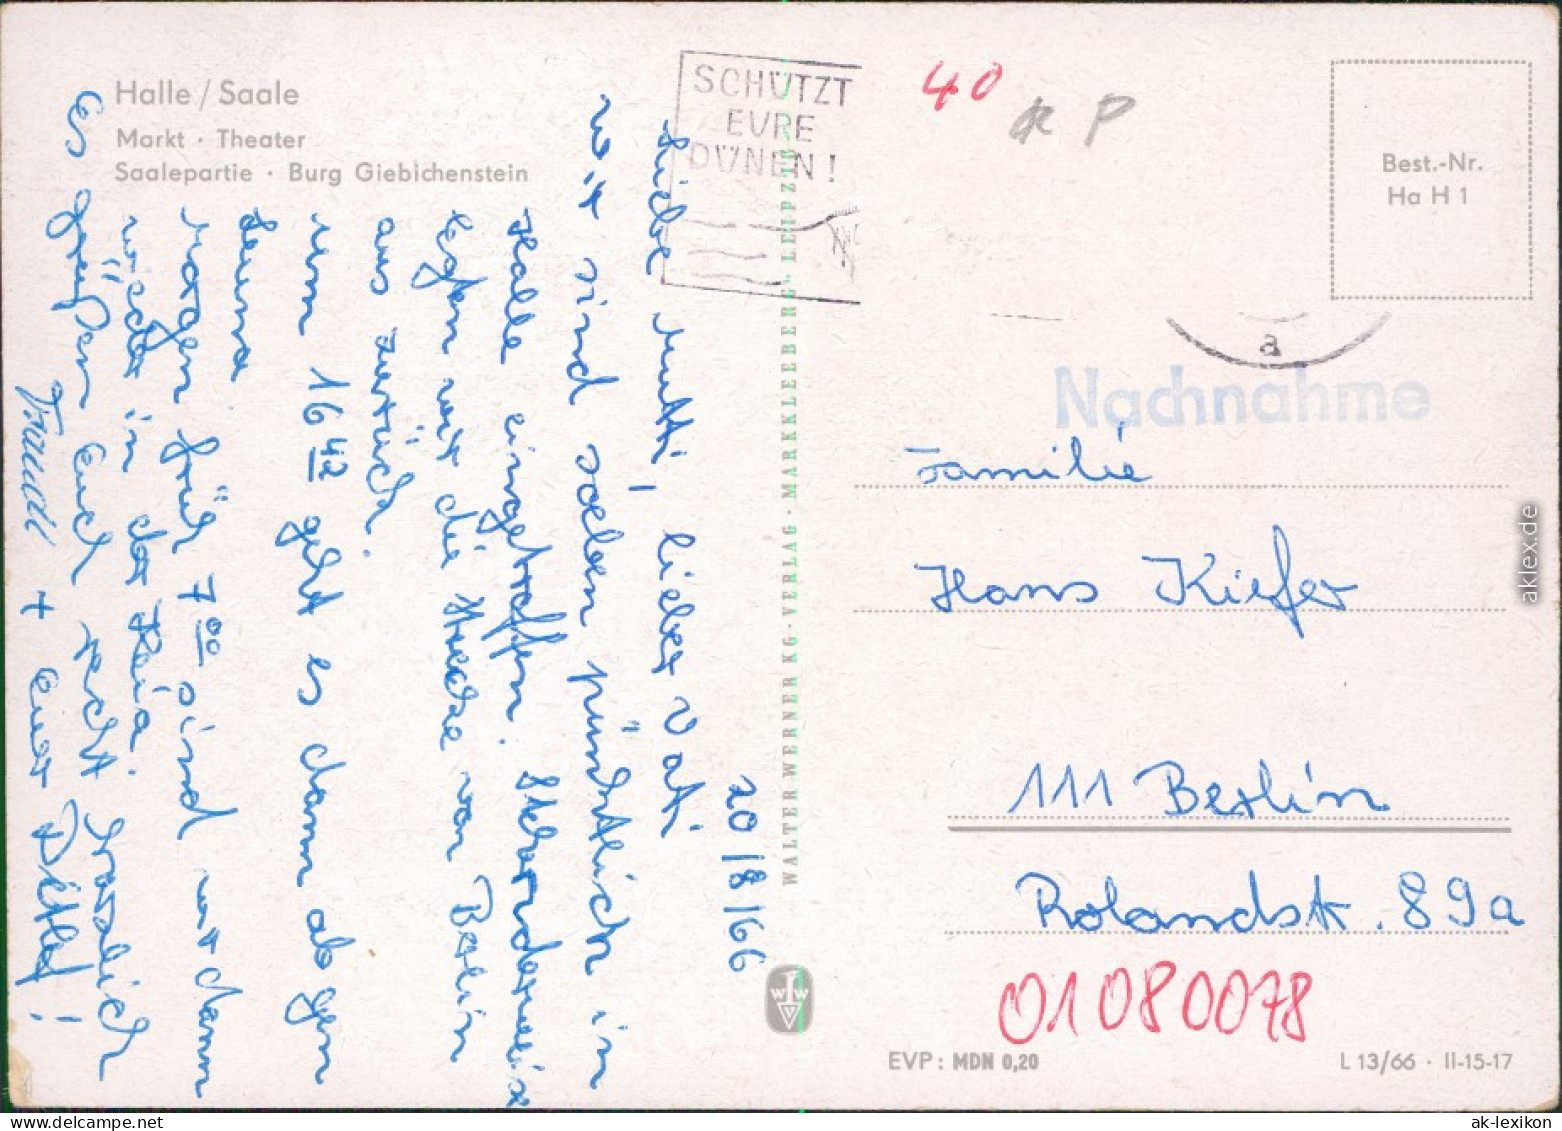 Halle / Saale
Markt · Theater
Saalepartie · Burg Giebichenstein
SCHÜTZT
EURE
DÜNEN!
40
P
Best.-Nr.
Ha H 1
20/8/66
Liebe Mutti, lieber Vati
wir sind soeben pünktlich in
Halle eingetroffen.
legten wir die Strecke von Berlin
aus zurück.
um 16 42 geht es dann ab gen
Leuna
Morgen früh 7 00 sind wir dann
wieder in der
Es grüßen Euch recht herzlich
Traudl + Euer Detlef!
WALTER WERNER KG · VERLAG · MARKKLEEBERG · LEIPZIG
WWV
a
Nachnahme
Familie
Hans Kiefer
111 Berlin
Rolandstr. 89a
01080078
EVP: MDN 0,20
L 13/66 · II-15-17
aklex.de
www.delcampe.net
ak-lexikon